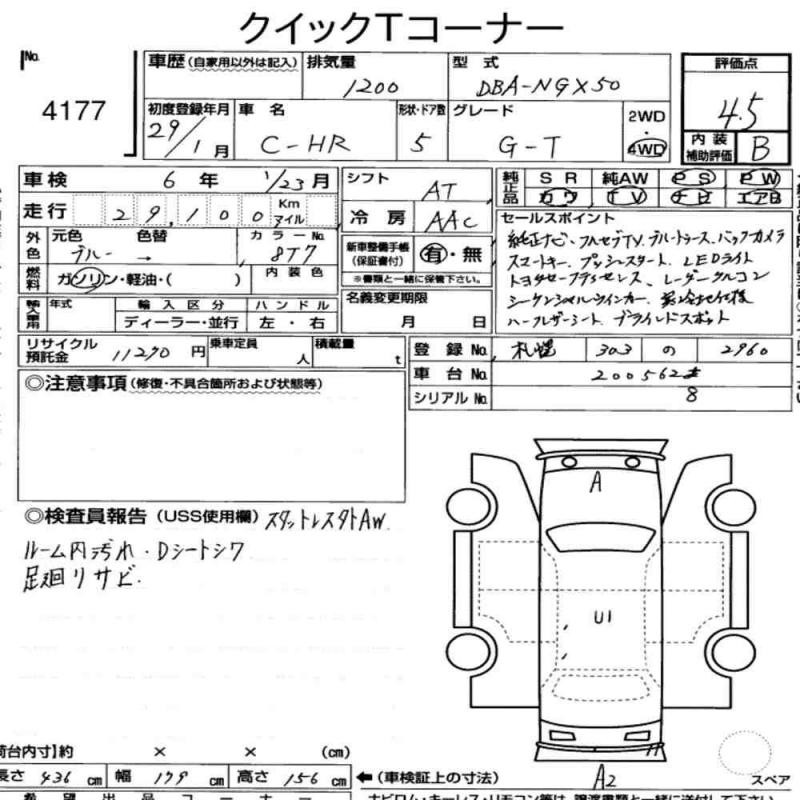 クイックTコーナー
No.
4177
車歴(自家用以外は記入)
排気量
1200
型 式
DBA-NGX50
評価点
4.5
初度登録年月
29/1月
車 名
C-HR
形状・ドア数
5
グレード
G-T
2WD
・
4WD
内 装
補助評価
B
車検
6 年 1/23月
シフト
AT
純正品
SR 純AW PS PW
カワ TV ナビ エアB
走行
29,100
Km
マイル
冷 房
AAC
セールスポイント
純正ナビ・フルセグTV・ブルートゥース・バックカメラ
スマートキー・プッシュスタート・LEDライト
トヨタセーフティセンス・レーダークルコン
シーケンシャルウインカー・寒冷地仕様
ハーフレザーシート・ブラインドスポット
外色
元色 色替
ブルー →
カラーNo.
8T7
新車整備手帳
(保証書付)
有・無
※書類と一緒に保管下さい。
燃料
ガソリン・軽油・( )
内 装 色
名義変更期限
月 日
輸入車
年式
輸 入 区 分
ディーラー・並行
ハ ン ド ル
左・右
リサイクル
預託金
11290 円
乗車定員
人
積載量
t
登 録 No.
札幌 303 の 2960
車 台 No.
2005625
シリアル No.
8
◎注意事項(修復・不具合箇所および状態等)
◎検査員報告(USS使用欄) スタットレスタイヤAW
ルーム内汚れ・Dシートシワ
足廻リサビ.
A
U1
A2
荷台内寸)約 × × (cm)
長さ 436 cm 幅 179 cm 高さ 156 cm
←(車検証上の寸法)
スペア
希 望 出 品 コ ー ナ ー
ナビロム・キーレス・リモコン等は、譲渡書類と一緒に送付して下